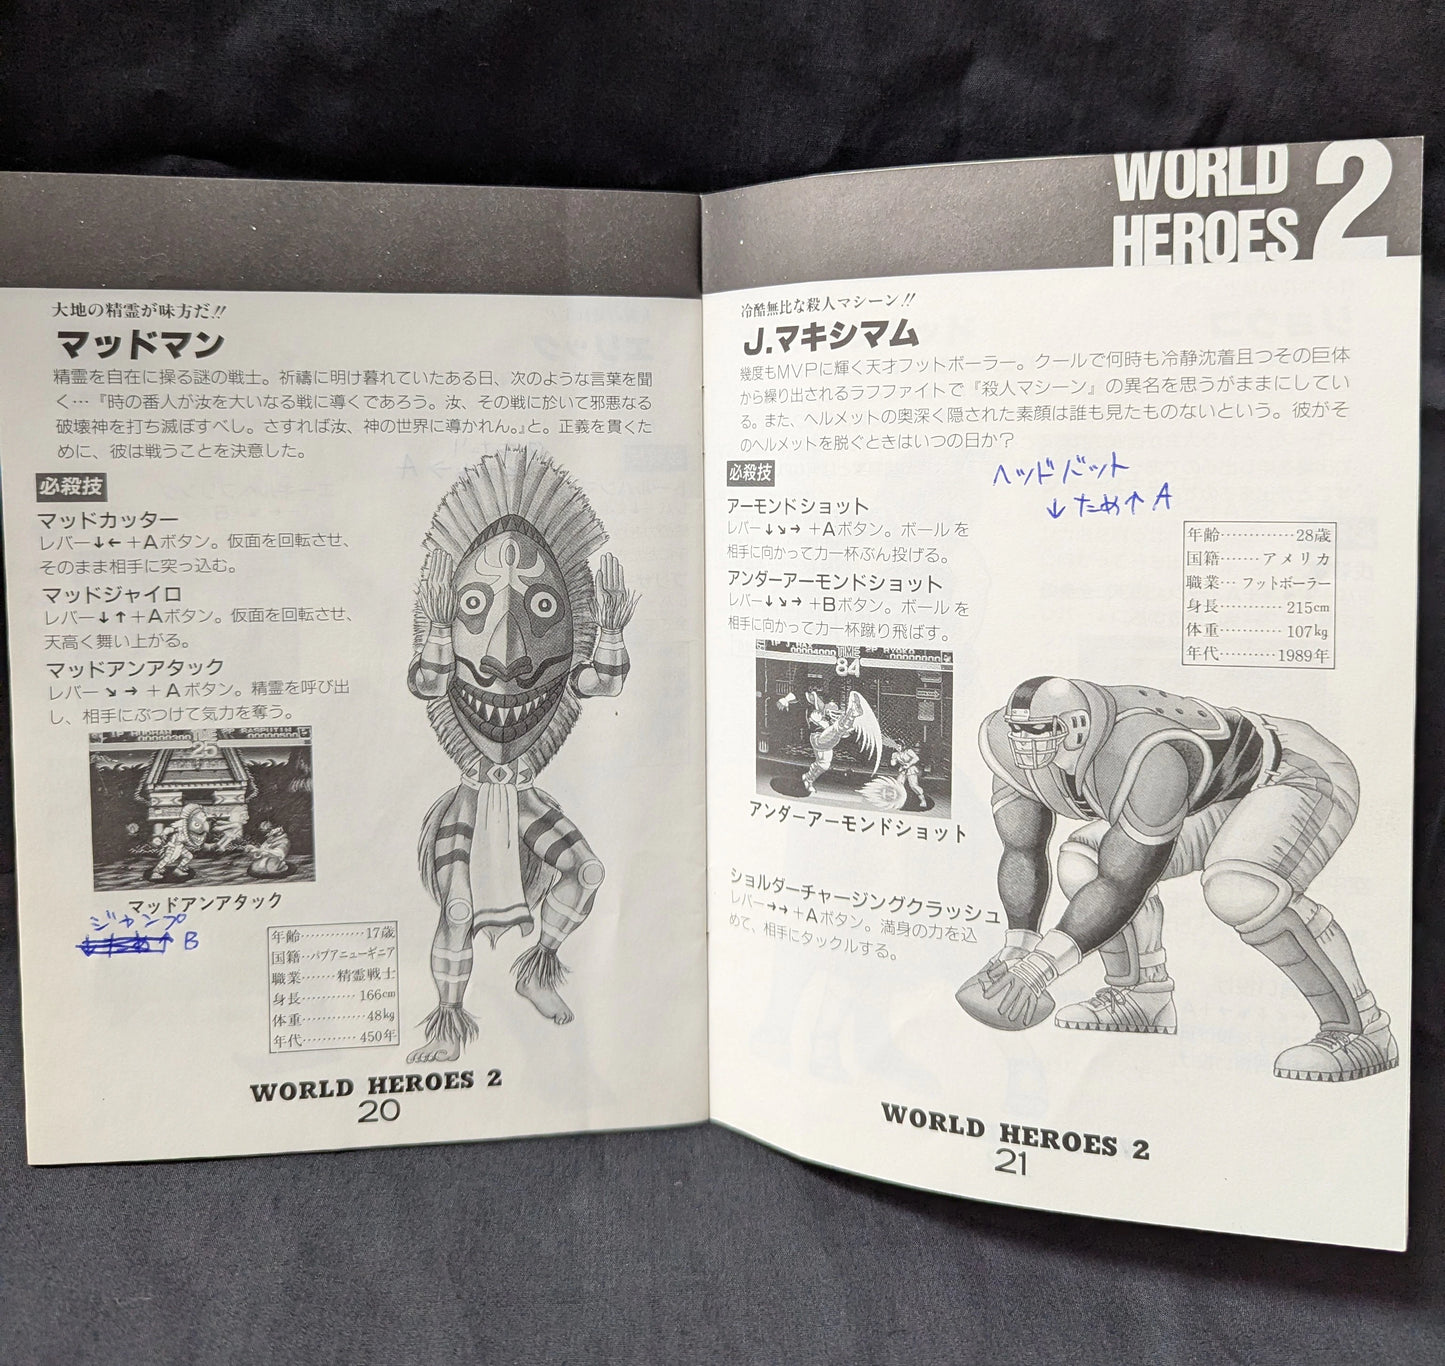 大地の精霊が味方だ!!
マッドマン
精霊を自在に操る謎の戦士。祈禱に明け暮れていたある日、次のような言葉を聞
く…『時の番人が汝を大いなる戦に導くであろう。汝、その戦に於いて邪悪なる
破壊神を打ち滅ぼすべし。さすれば汝、神の世界に導かれん。』と。正義を貫くた
めに、彼は戦うことを決意した。
必殺技
マッドカッター
レバー↓←+Aボタン。仮面を回転させ、
そのまま相手に突っ込む。
マッドジャイロ
レバー↓↑+Aボタン。仮面を回転させ、
天高く舞い上がる。
マッドアンアタック
レバー↘→+Aボタン。精霊を呼び出
し、相手にぶつけて気力を奪う。
25
RASPUTIN
マッドアンアタック
ジャンプ
B
年齢…………17歳
国籍…パプアニューギニア
職業……精霊戦士
身長…………166cm
体重…………48kg
年代…………450年
WORLD HEROES 2
20
WORLD
HEROES 2
冷酷無比な殺人マシーン!!
J.マキシマム
幾度もMVPに輝く天才フットボーラー。クールで何時も冷静沈着且つその巨体
から繰り出されるラフファイトで『殺人マシーン』の異名を思うがままにしてい
る。また、ヘルメットの奥深く隠された素顔は誰も見たものないという。彼がそ
のヘルメットを脱ぐときはいつの日か?
必殺技
ヘッドバット
↓ため↑A
アーモンドショット
レバー↓↘→+Aボタン。ボールを
相手に向かって力一杯ぶん投げる。
アンダーアーモンドショット
レバー↓↘→+Bボタン。ボールを
相手に向かって力一杯蹴り飛ばす。
年齢…………28歳
国籍……アメリカ
職業…フットボーラー
身長…………215cm
体重…………107kg
年代…………1989年
1P J.MAX TIME 2P RYOKO
84
アンダーアーモンドショット
ショルダーチャージングクラッシュ
レバー→→+Aボタン。満身の力を込
めて、相手にタックルする。
WORLD HEROES 2
21